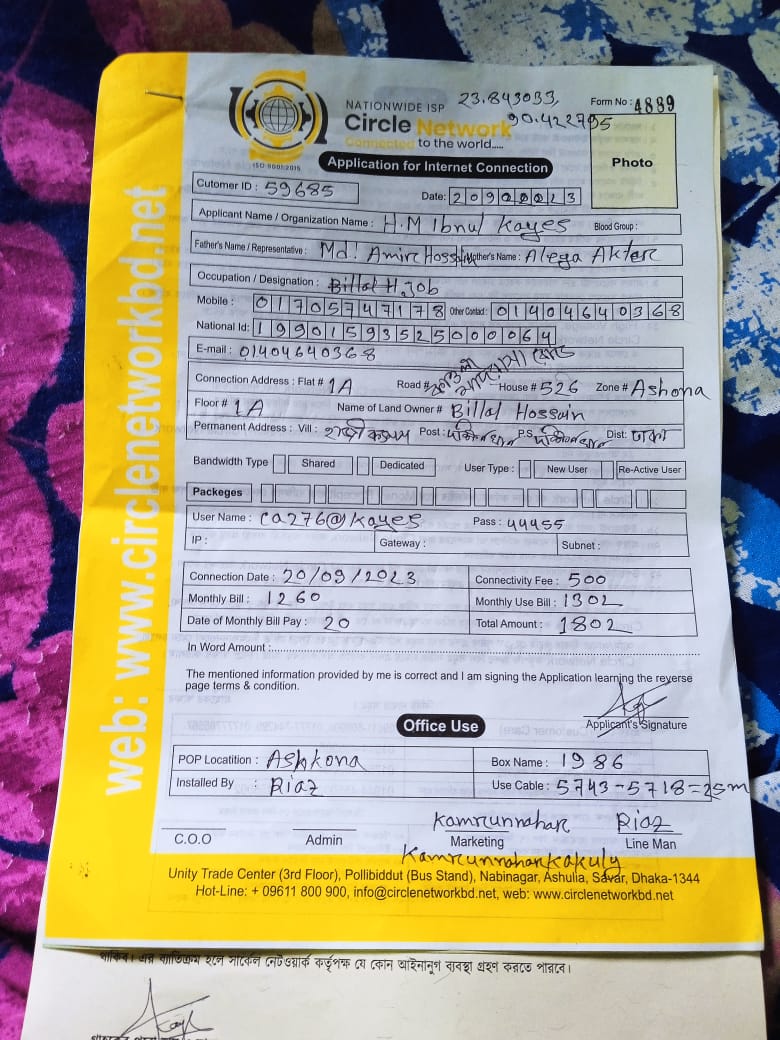 NATIONWIDE ISP 23.843033,
Form No : 4889
Circle Network 90.422795
Connected to the world.....
ISO 9001:2015
Application for Internet Connection
Photo
Cutomer ID : 59685
Date: 20092023
Applicant Name / Organization Name : H.M Ibnul Kayes Blood Group :
Father's Name / Representative : Md: Amir Hossain Mother's Name : Aleya Akter
Occupation / Designation : Billal H, Job
Mobile : 01705747178 Other Contact : 01404640368
National Id: 19901593525000064
E-mail : 01404640368
Connection Address : Flat # 1A Road # House # 526 Zone # Ashona
Floor # 1A Name of Land Owner # Billal Hossain
Permanent Address : Vill : Post : P.S Dist: ঢাকা
Bandwidth Type Shared Dedicated User Type : New User Re-Active User
Packeges
User Name : ca276@kayes Pass : 44455
IP : Gateway : Subnet :
Connection Date : 20/09/2023 Connectivity Fee : 500
Monthly Bill : 1260 Monthly Use Bill : 1302
Date of Monthly Bill Pay : 20 Total Amount : 1802
In Word Amount :
The mentioned information provided by me is correct and I am signing the Application learning the reverse
page terms & condition.
Applicant's Signature
Office Use
POP Locatition : Ashkona Box Name : 1986
Installed By : Riaz Use Cable : 5743-5718=25m
Kamrunnahar Riaz
C.O.O Admin Marketing Line Man
Kamrunnaharkakuly
Unity Trade Center (3rd Floor), Pollibiddut (Bus Stand), Nabinagar, Ashulia, Savar, Dhaka-1344
Hot-Line: + 09611 800 900, info@circlenetworkbd.net, web: www.circlenetworkbd.net
web: www.circlenetworkbd.net
থাকিব। এর ব্যতিক্রম হলে সার্কেল নেটওয়ার্ক কর্তৃপক্ষ যে কোন আইনানুগ ব্যবস্থা গ্রহণ করতে পারবে।